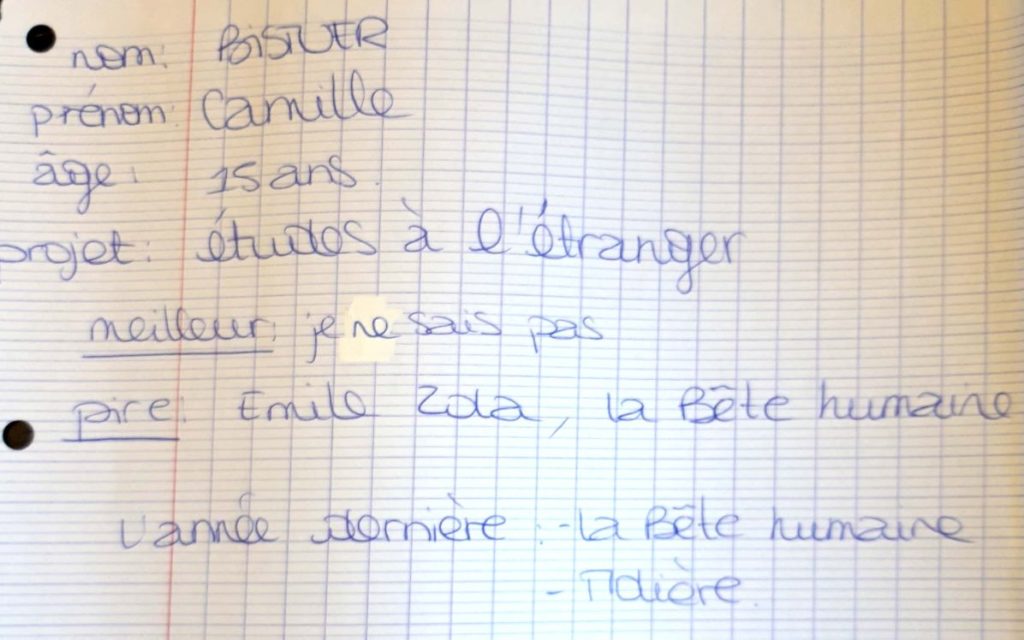 nom: BiSTUER
prénom: Camille
âge: 15 ans.
projet: études à l'étranger
meilleur: je ne sais pas
pire: Emile Zola, la Bête humaine
L'année dernière: - la Bête humaine
- Molière.